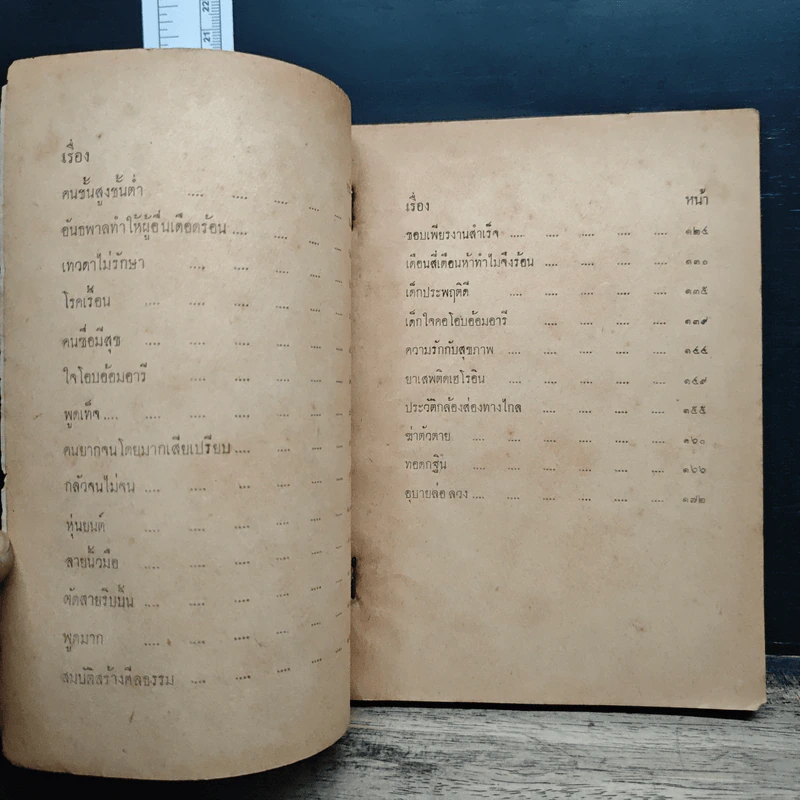 22
21
เรื่อง
คนชั้นสูงชั้นต่ำ .... .... .... ....
อันธพาลทำให้ผู้อื่นเดือดร้อน .... .... ....
เทวดาไม่รักษา .... .... ....
โรคเรื้อน .... .... .... ....
คนซื่อมีสุข .... .... .... ....
ใจโอบอ้อมอารี .... .... ....
พูดเท็จ .... .... .... .... ....
คนยากจนโดยมากเสียเปรียบ .... .... ....
กลัวจนไม่จน .... .... .... ....
หุ่นยนต์ .... .... .... ....
ลายนิ้วมือ .... .... .... ....
ตัดสายริบบิ้น .... .... .... ....
พูดมาก .... .... .... ....
สมบัติสร้างศีลธรรม .... .... .... ....
เรื่อง หน้า
ชอบเพียรงานสำเร็จ .... .... .... .... ๑๒๔
เดือนสี่เดือนห้าทำไมจึงร้อน .... .... .... ๑๓๐
เด็กประพฤติดี .... .... .... .... ๑๓๕
เด็กใจคอโอบอ้อมอารี .... .... .... ๑๓๙
ความรักกับสุขภาพ .... .... .... .... ๑๔๔
ยาเสพติดเฮโรอิน .... .... .... .... ๑๔๙
ประวัติกล้องส่องทางไกล .... .... .... ๑๕๕
ฆ่าตัวตาย .... .... .... .... ๑๖๐
ทอดกฐิน .... .... .... .... ๑๖๖
อุบายล่อลวง .... .... .... .... ๑๗๒